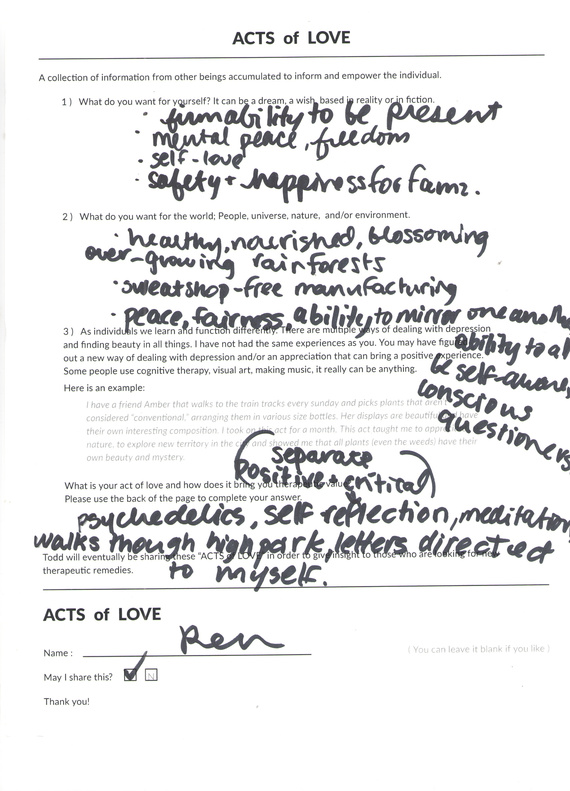 ACTS of LOVE
A collection of information from other beings accumulated to inform and empower the individual.
1 ) What do you want for yourself? It can be a dream, a wish, based in reality or in fiction.
· firm ability to be present
· mental peace, freedom
· self-love
· safety + happiness for fam.
2 ) What do you want for the world; People, universe, nature, and/or environment.
· healthy, nourished, blossoming
over-growing rainforests
· sweatshop-free manufacturing
· peace, fairness, ability to mirror one another
3 ) As individuals we learn and function differently. There are multiple ways of dealing with depression
and finding beauty in all things. I have not had the same experiences as you. You may have figured
out a new way of dealing with depression and/or an appreciation that can bring a positive experience.
Some people use cognitive therapy, visual art, making music, it really can be anything.
ability to al
be self-aware,
conscious
questioners
Here is an example:
I have a friend Amber that walks to the train tracks every sunday and picks plants that aren't
considered "conventional," arranging them in various size bottles. Her displays are beautiful have
their own interesting composition. I took on this act for a month. This act taught me to appr
nature, to explore new territory in the city and showed me that all plants (even the weeds) have their
own beauty and mystery.
(separate
positive critical)
What is your act of love and how does it bring you therapeutic value?
Please use the back of the page to complete your answer.
psychedelics, self reflection, meditation
walks though high park, letters directed
to myself.
Todd will eventually be sharing these "ACTS of LOVE" in order to give insight to those who are looking for new
therapeutic remedies.
ACTS of LOVE
Name : Ren
( You can leave it blank if you like )
May I share this? Y N
Thank you!